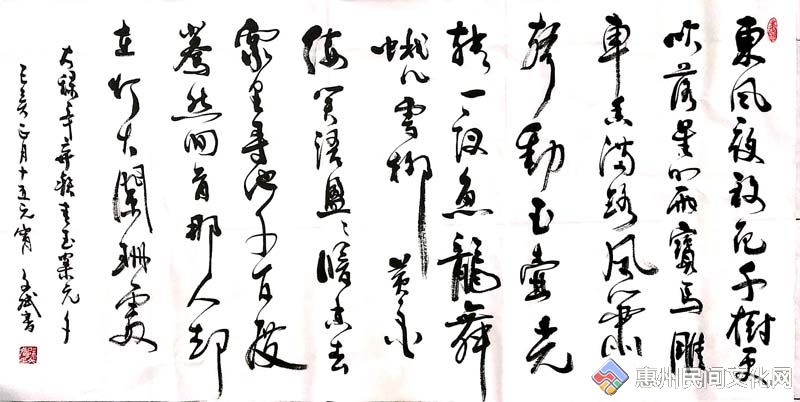 東风夜放花千樹更
吹落星如雨寶馬雕
車香滿路风簫
聲動玉壺光
转一夜魚龍舞
蛾儿雪柳黄金
缕笑语盈〻暗香去
众里寻他千百度
驀然回首那人却
在灯火闌珊處
辛弃疾青玉案元夕
己亥正月十五元宵 書
惠州民间文化网